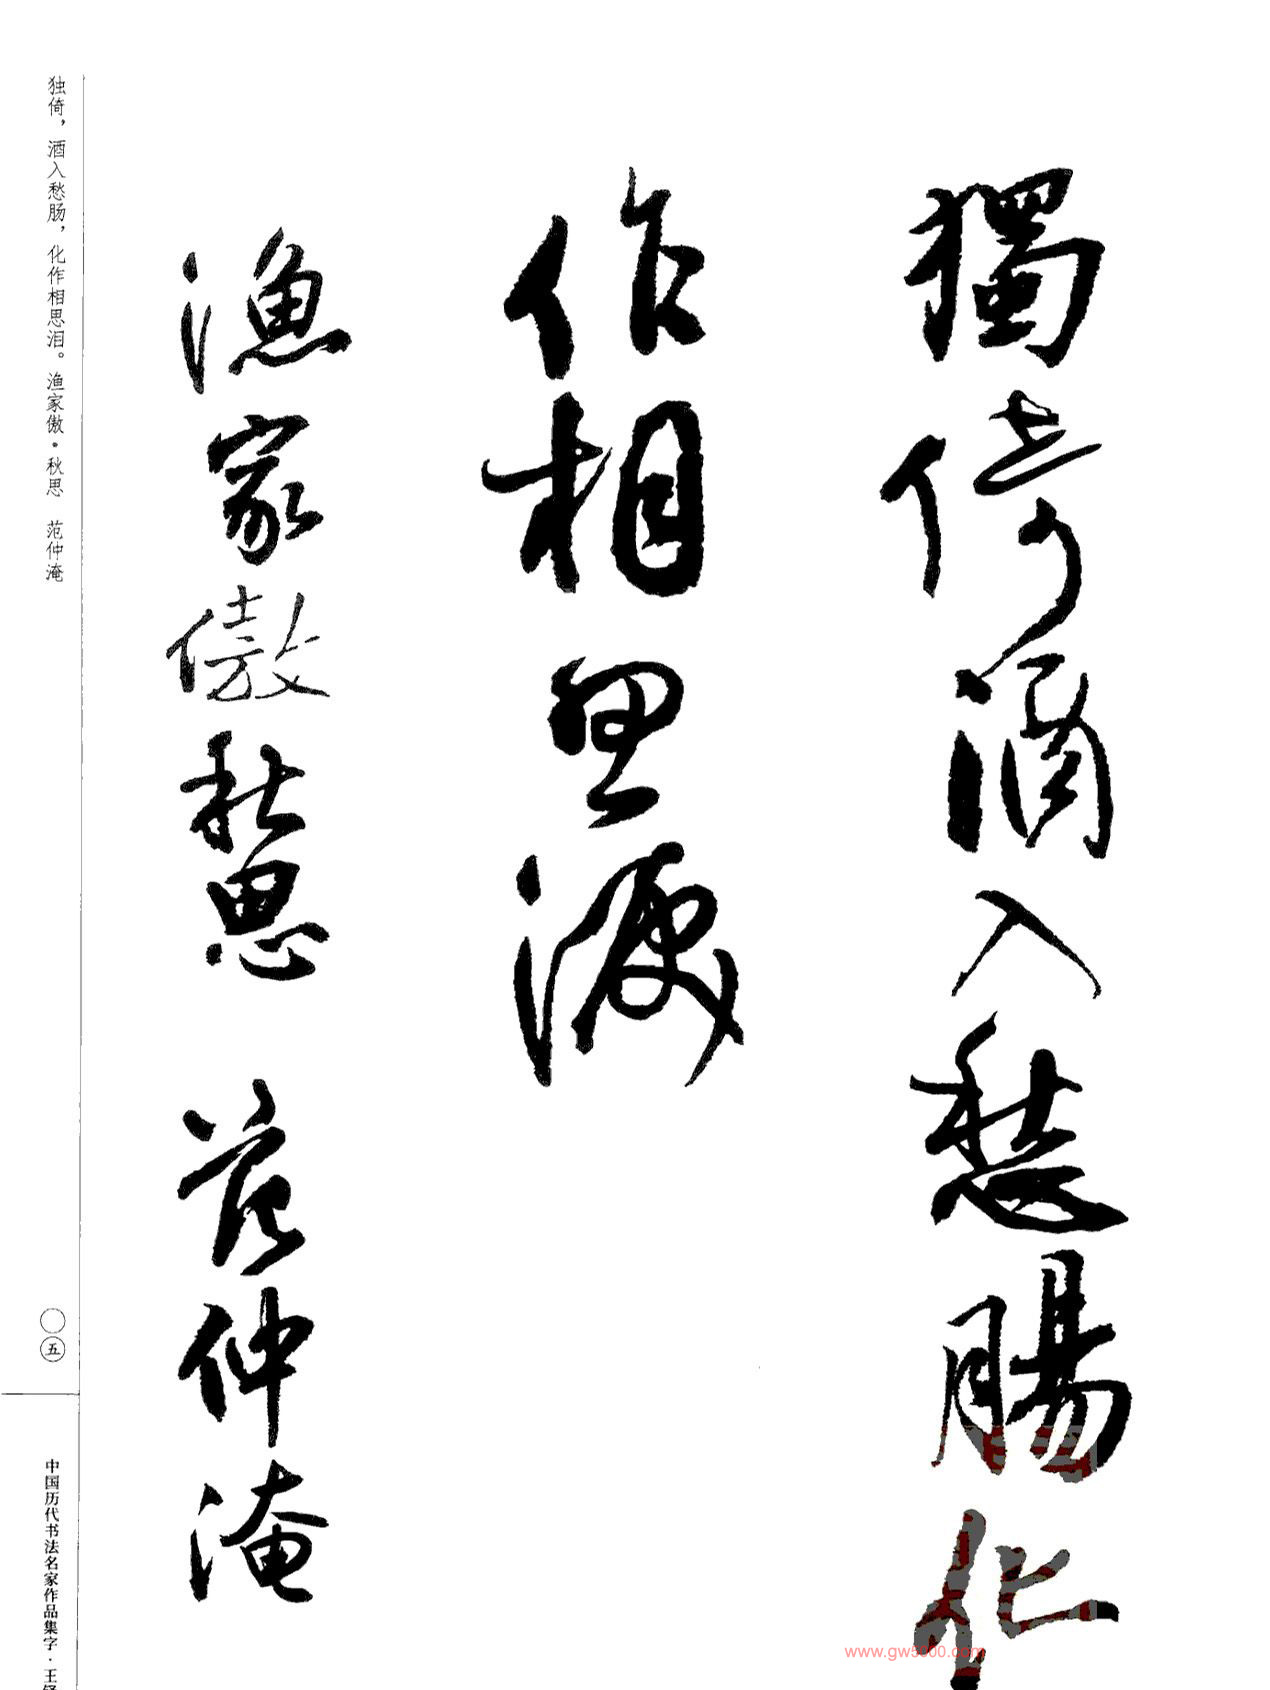 獨倚酒入愁腸化
作相思淚
漁家傲秋思 范仲淹
独倚，酒入愁肠，化作相思泪。渔家傲·秋思 范仲淹
〇五
中国历代书法名家作品集字·王铎
www.gw5000.com